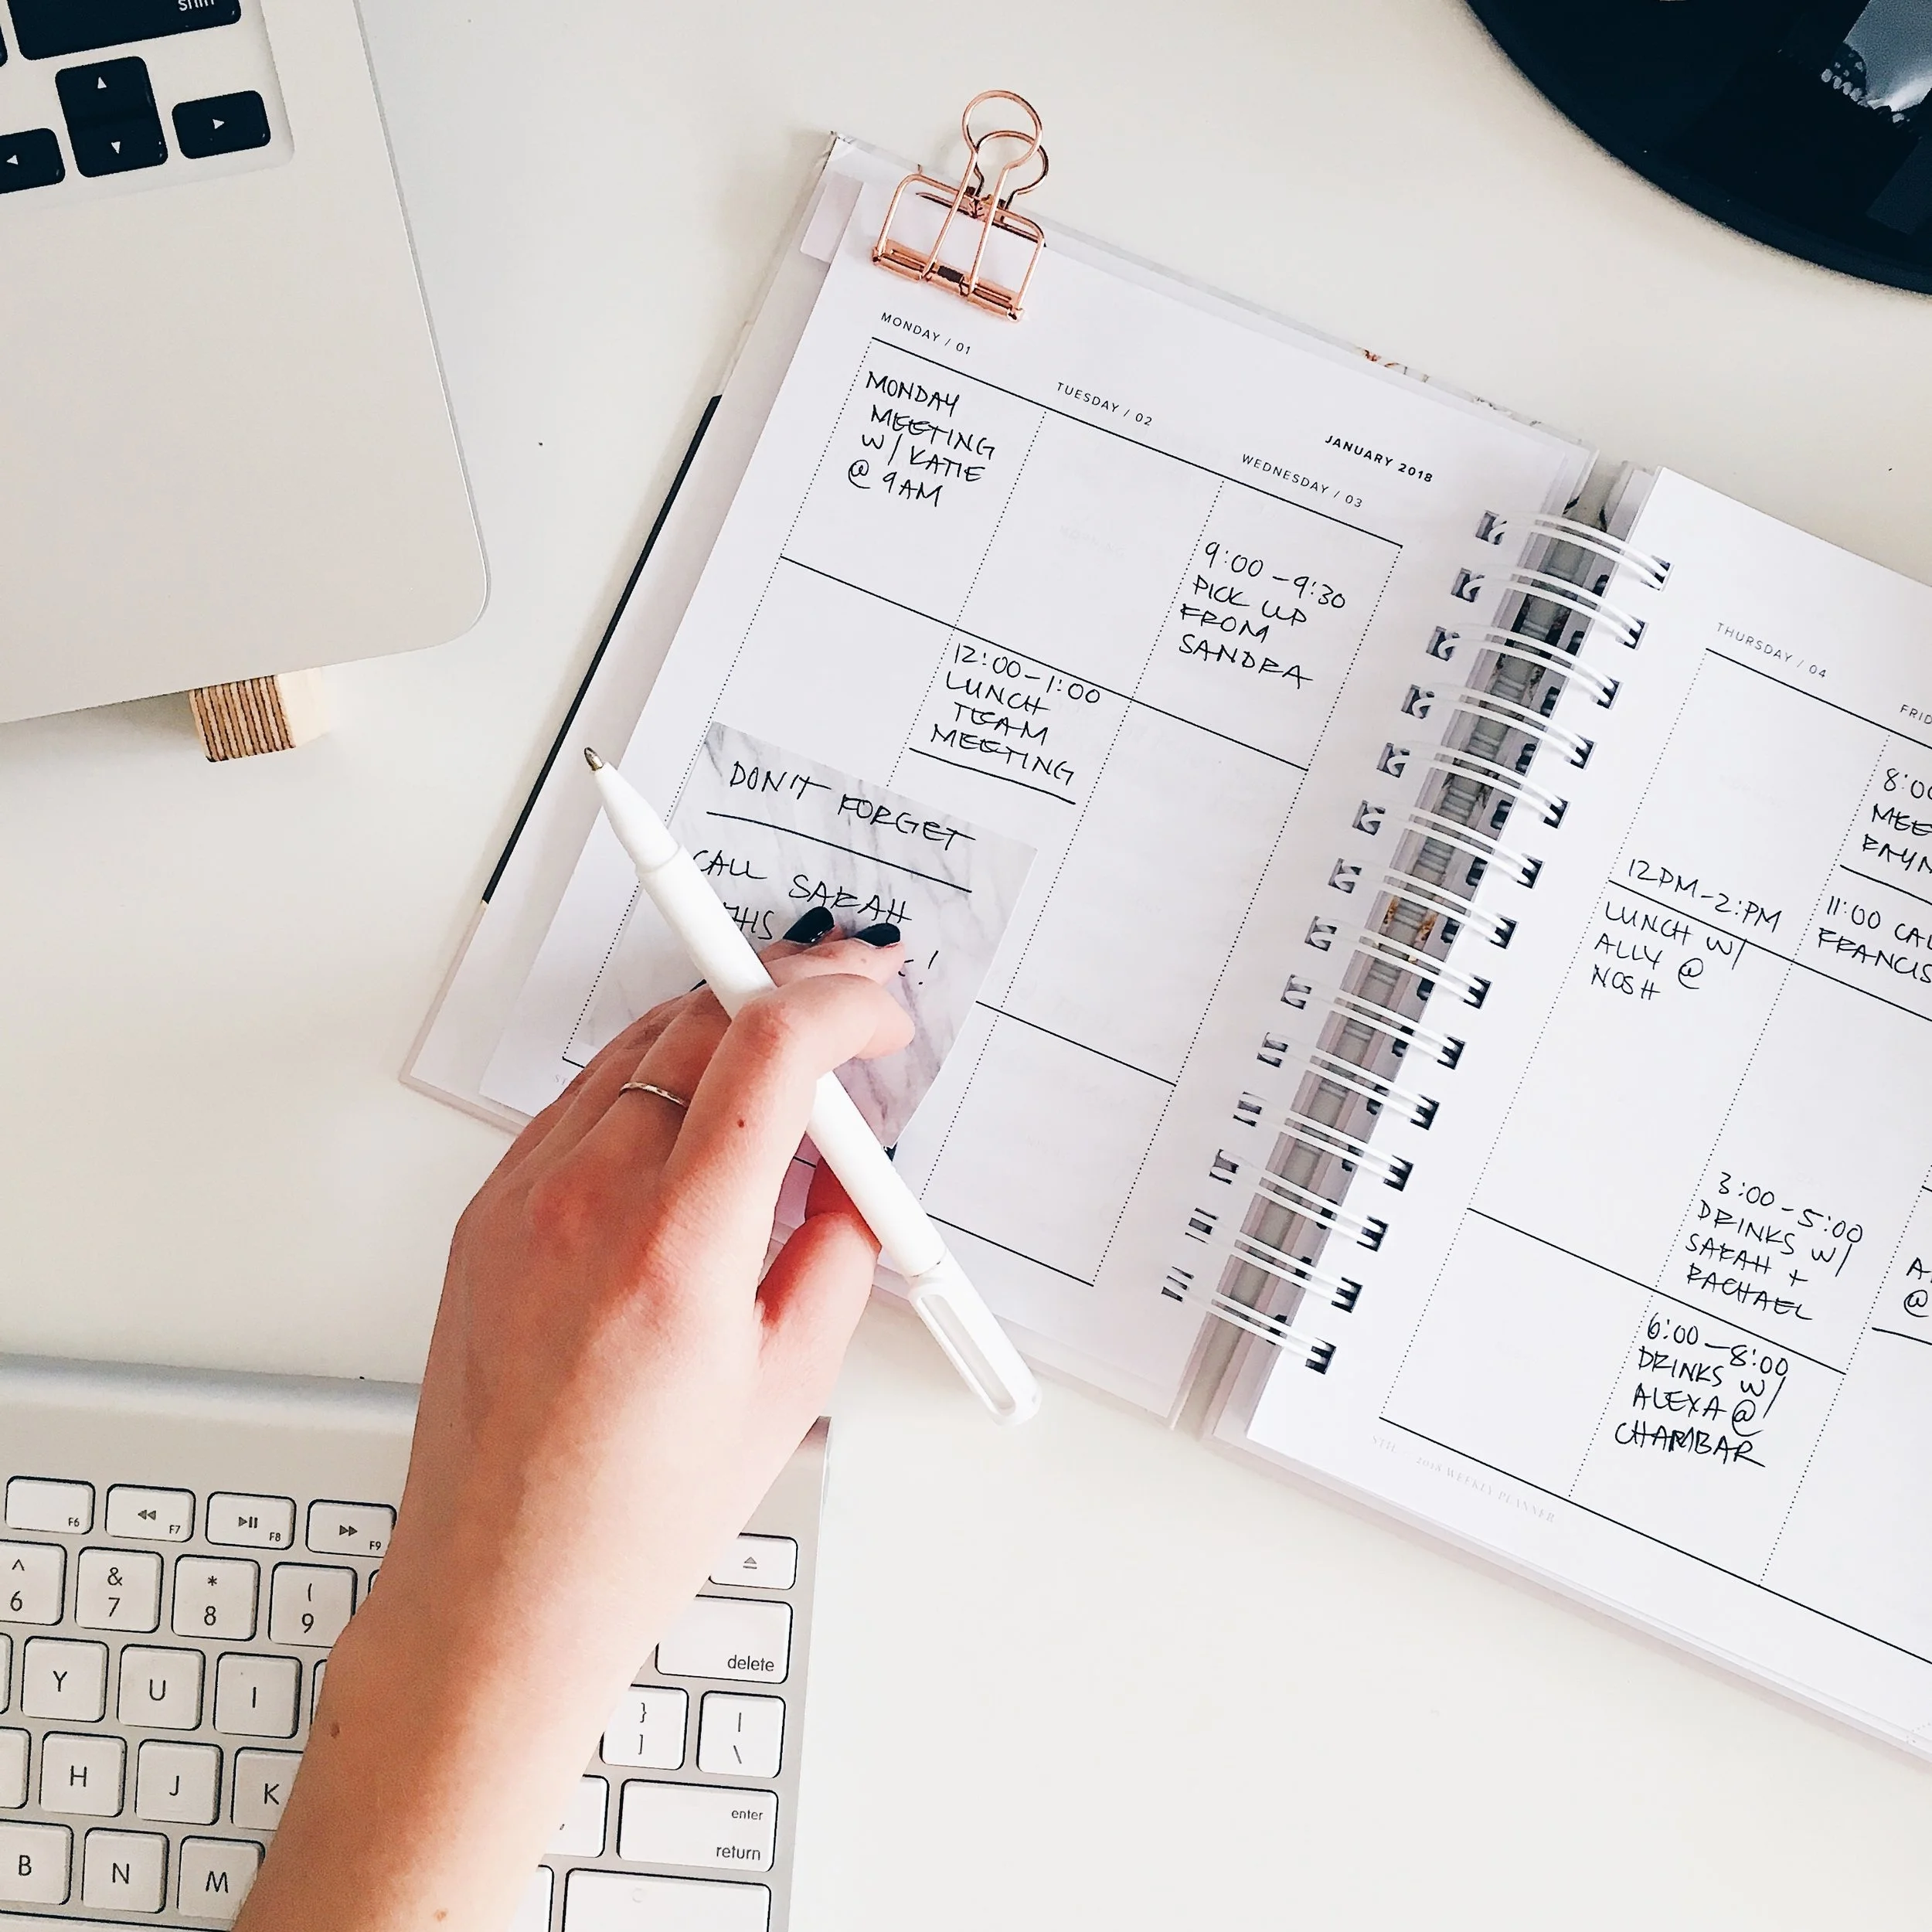 shift
MONDAY / 01
MONDAY
MEETING
W/ KATIE
@ 9AM
TUESDAY / 02
12:00-1:00
LUNCH
TEAM
MEETING
JANUARY 2018
WEDNESDAY / 03
9:00-9:30
PICK UP
FROM
SANDRA
DON'T FORGET
CALL SARAH
THIS
!
THURSDAY / 04
12PM-2:PM
LUNCH W/
ALLY @
NOSH
FRID
8:00
MEE
11:00 CAL
FRANCIS
3:00-5:00
DRINKS W/
SARAH +
RACHAEL
6:00-8:00
DRINKS W/
ALEXA @
CHAMBAR
A
@
2018 WEEKLY PLANNER
F6 F7 F8 F9
^ & * (
6 7 8 9
delete
Y U I } |
] \
H J K enter
return
B N M